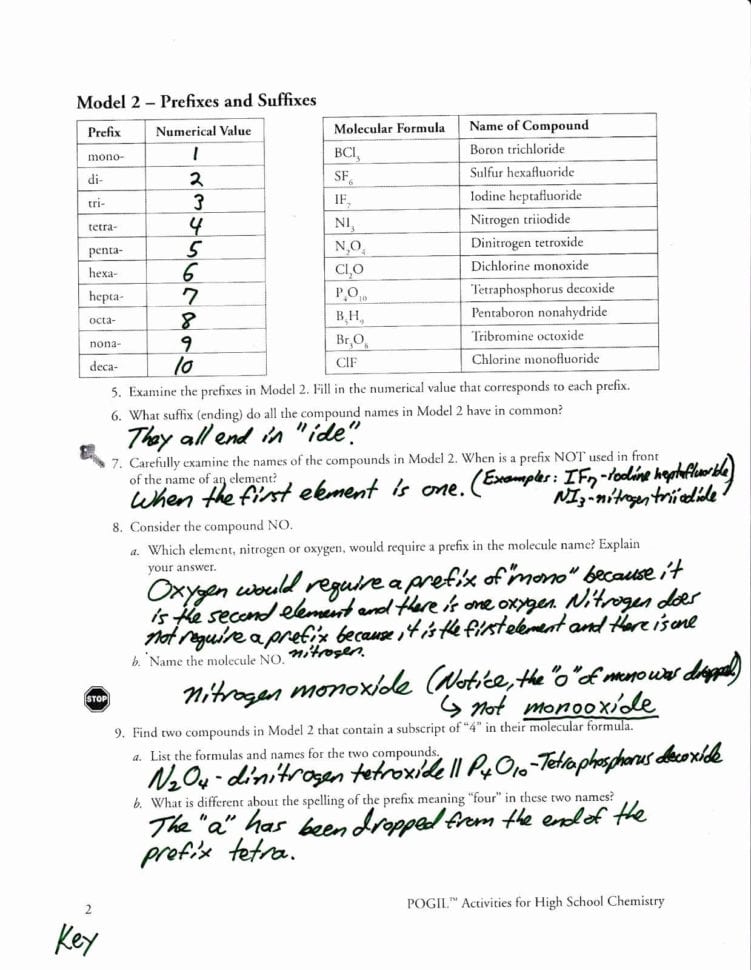 Model 2 – Prefixes and Suffixes
Prefix Numerical Value
mono- 1
di- 2
tri- 3
tetra- 4
penta- 5
hexa- 6
hepta- 7
octa- 8
nona- 9
deca- 10
Molecular Formula Name of Compound
BCl₃ Boron trichloride
SF₆ Sulfur hexafluoride
IF₇ Iodine heptafluoride
NI₃ Nitrogen triiodide
N₂O₄ Dinitrogen tetroxide
Cl₂O Dichlorine monoxide
P₄O₁₀ Tetraphosphorus decoxide
B₅H₉ Pentaboron nonahydride
Br₃O₈ Tribromine octoxide
ClF Chlorine monofluoride
5. Examine the prefixes in Model 2. Fill in the numerical value that corresponds to each prefix.
6. What suffix (ending) do all the compound names in Model 2 have in common?
They all end in "ide."
7. Carefully examine the names of the compounds in Model 2. When is a prefix NOT used in front
of the name of an element?
When the first element is one. (Examples: IF₇-iodine heptafluoride)
NI₃-nitrogen triiodide
8. Consider the compound NO.
a. Which element, nitrogen or oxygen, would require a prefix in the molecule name? Explain
your answer.
Oxygen would require a prefix of "mono" because it
is the second element and there is one oxygen. Nitrogen does
not require a prefix because it is the first element and there is one
nitrogen.
b. Name the molecule NO.
nitrogen monoxide (Notice, the "o" of mono was dropped)
STOP
↳ not monooxide
9. Find two compounds in Model 2 that contain a subscript of “4” in their molecular formula.
a. List the formulas and names for the two compounds.
N₂O₄ - dinitrogen tetroxide || P₄O₁₀-Tetraphosphorus decoxide
b. What is different about the spelling of the prefix meaning “four” in these two names?
The "a" has been dropped from the end of the
prefix tetra.
2
POGIL™ Activities for High School Chemistry
Key